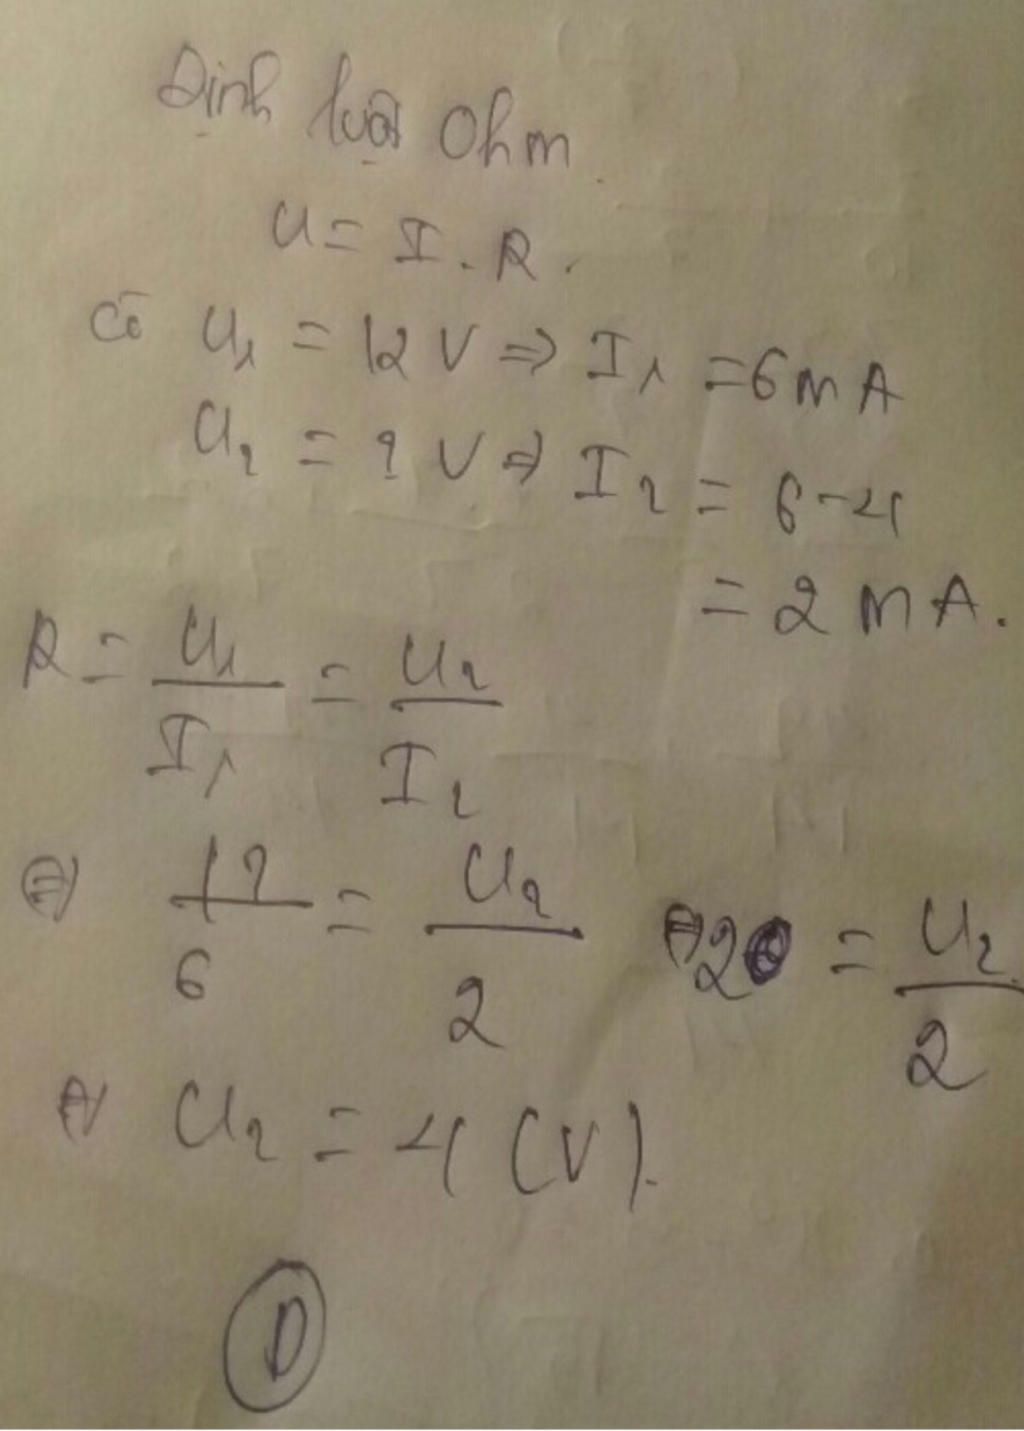 Định luật Ohm
U = I . R .
Có U₁ = 12 V ⇒ I₁ = 6 mA
U₂ = ? V ⇒ I₂ = 6 - 4
= 2 mA.
R = U₁/I₁ = U₂/I₂
⇔ 12/6 = U₂/2 ⇔ 2 = U₂/2
⇔ U₂ = 4 (V).
D